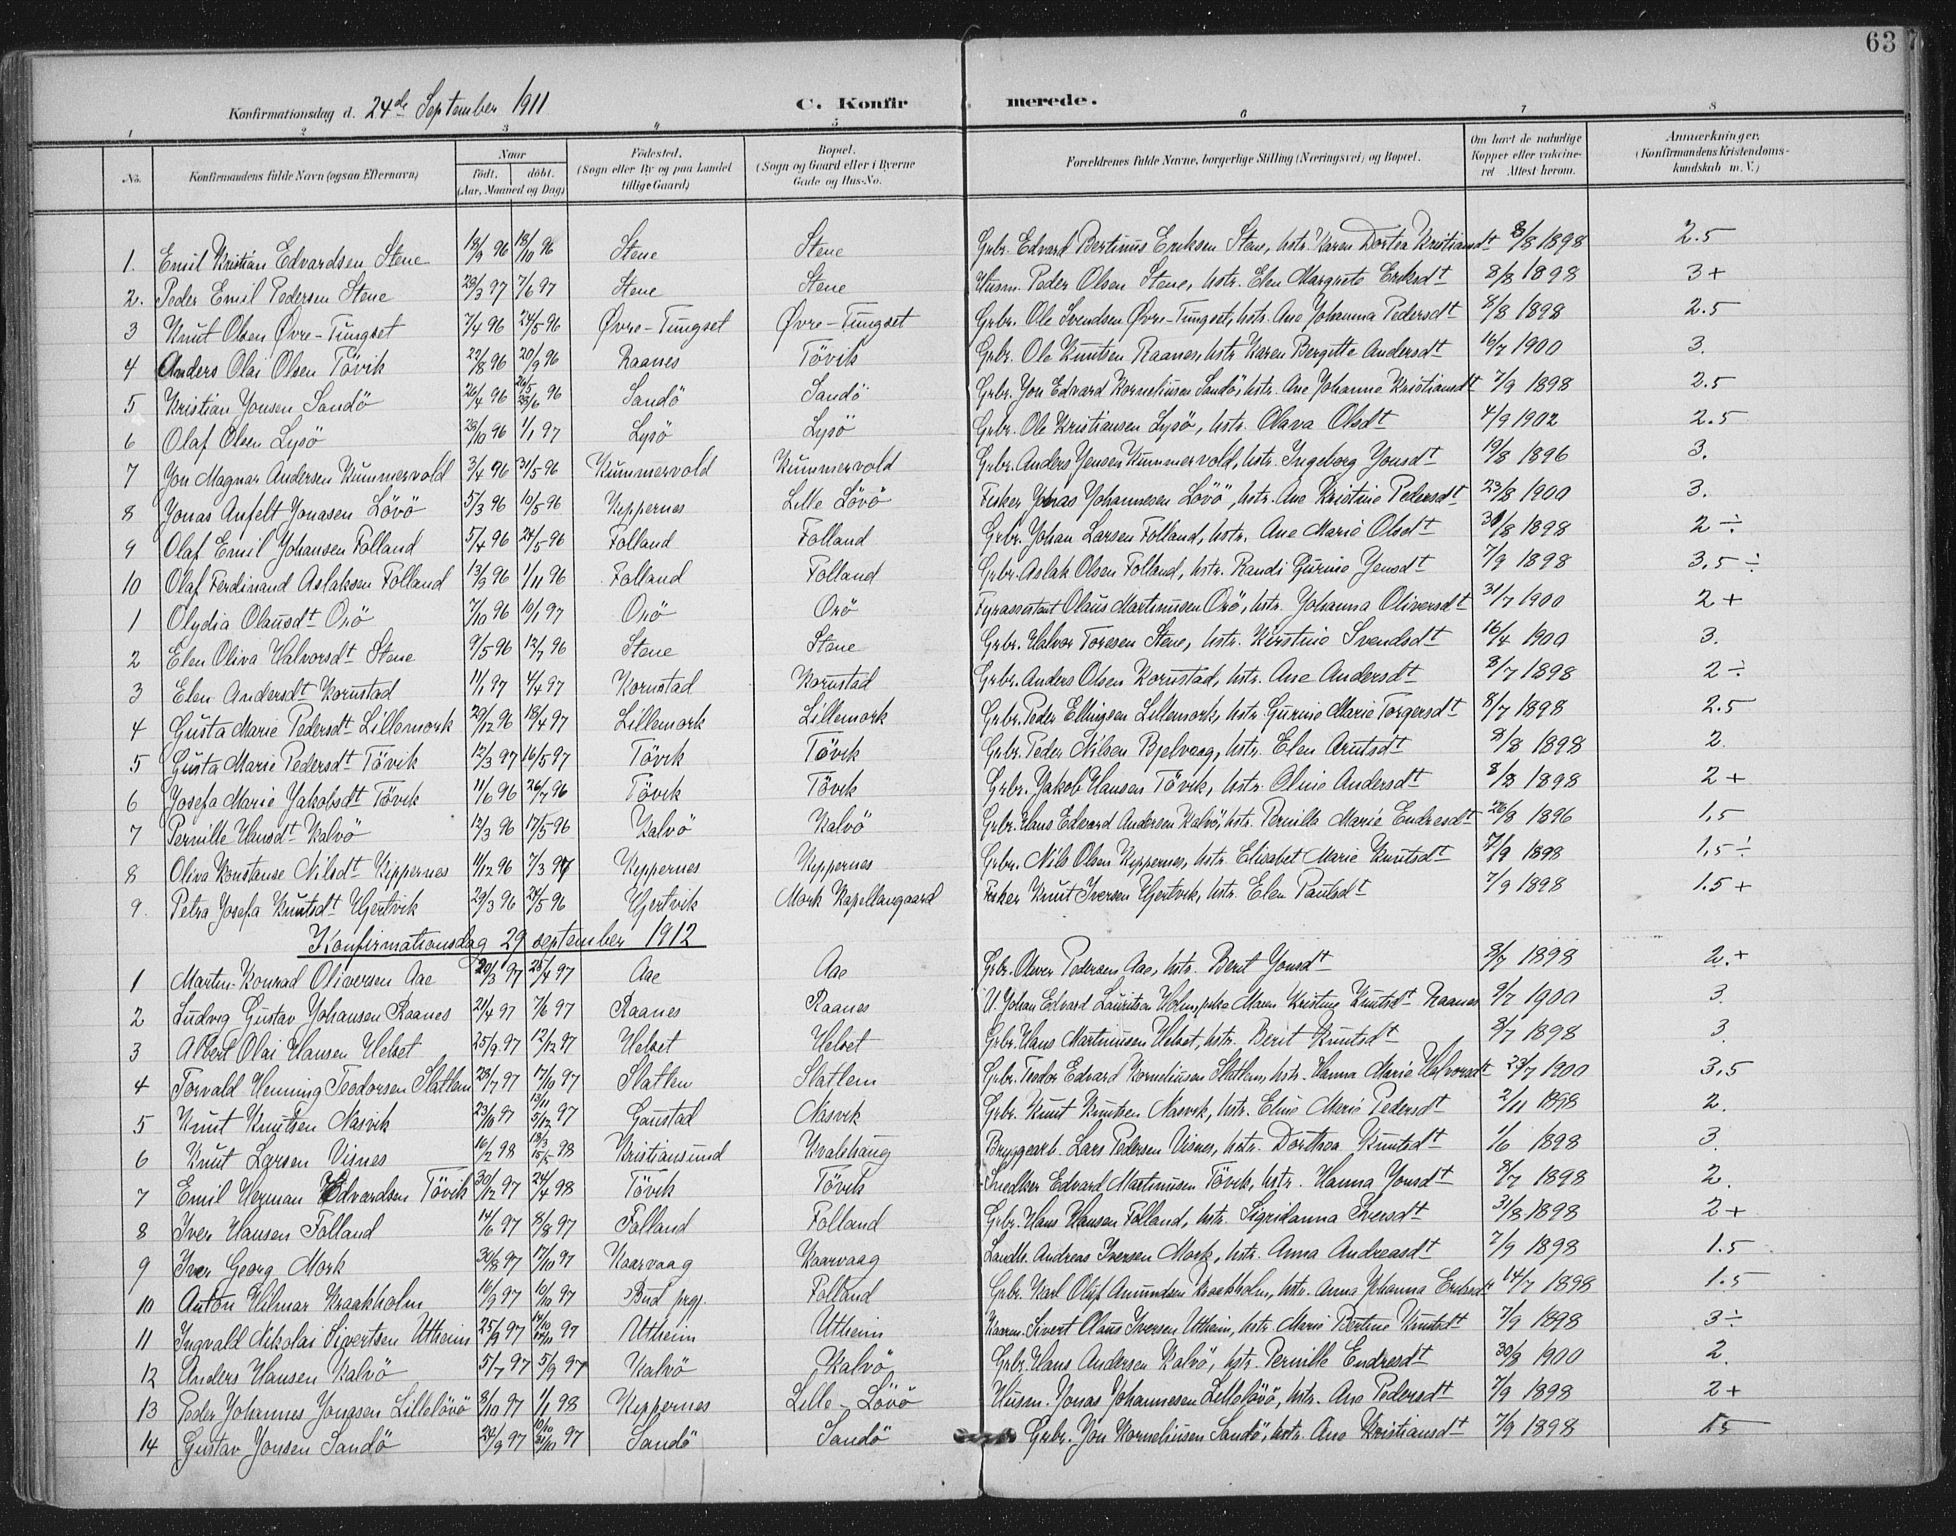 63
Konfirmationsdag d. 24de September 1911 C. Konfirmerede.
1 2 3 4 5 6 7 8
No. Konfirmandens fulde Navn (ogsaa Efternavn) Naar født. døbt. (Aar, Maaned og Dag) Fødested. (Sogn eller By og paa Landet tillige Gaard) Bopæl. (Sogn og Gaard eller i Byerne Gade og Hus-No. Forældrenes fulde Navne, borgerlige Stilling (Næringsvei) og Bopæl. Om havt de naturlige Kopper eller vakcineret. Attest herom. Anmærkninger. (Konfirmandens Kristendomskundskab m. V.)
1. Emil Kristian Edvardsen Stene 18/9 96 18/10 96 Stene Stene Grbr. Edvard Bertinus Eriksen Stene, hstr. Karen Dortea Kristiansdt 8/8 1898 2.5
2. Peder Emil Pedersen Stene 29/3 97 7/6 97 Stene Stene Husm. Peder Olsen Stene, hstr. Elen Margrete Eriksdt 8/8 1898 3+
3 Knut Olsen Øvre-Tungset 7/4 96 24/5 96 Øvre-Tungset Øvre-Tungset Grbr. Ole Svendsen Øvre-Tungset, hstr. Ane Johanna Pedersdt 8/8 1898 2.5
4 Anders Olai Olsen Tövik 22/8 96 20/9 96 Raanes Tövik Grbr. Ole Knutsen Raanes, hstr. Karen Bergitte Andersdt 16/7 1900 3.
5 Kristian Jonsen Sandö 26/4 96 26/5 23/6 96 Sandö Sandö Grbr. Jon Edvard Korneliusen Sandö, hstr. Ane Johanne Kristiansdt 7/9 1898 2.5
6 Olaf Olsen Lysö 29/10 96 1/1 97 Lysö Lysö Grbr. Ole Kristiansen Lysö, hstr. Olava Olsdt 4/9 1902 2.5
7 Jon Magnar Andersen Kummervold 3/4 96 31/5 96 Kummervold Kummervold Grbr. Anders Jensen Kummervold, hstr. Ingeborg Jonsdt 19/8 1896 3.
8 Jonas Anfelt Jonasen Lövö 5/3 96 10/5 96 Keppernes Lille Lövö Fisker Jonas Johannesen Lövö, hstr. Ane Kristine Pedersdt 23/8 1900 3.
9 Olaf Emil Johansen Folland 5/4 96 24/5 96 Folland Folland Grbr. Johan Larsen Folland, hstr. Ane Marie Olsdt 31/8 1898 2 ÷
10 Olaf Ferdinand Aslaksen Folland 13/9 96 1/11 96 Folland Folland Grbr. Aslak Olsen Folland, hstr. Randi Gurine Jensdt 7/9 1898 3.5 ÷
1 Olydia Olausdt Orö 7/10 96 10/1 97 Orö Orö Fyrassistent Olaus Martinusen Orö, hstr. Johanna Oliversdt 31/7 1900 2 +
2 Elen Oliva Halvorsdt Stene 9/5 96 12/7 96 Stene Stene Grbr. Halvor Toresen Stene, hstr. Kirstine Svendsdt 16/4 1900 3.
3 Elen Andersdt Kornstad 11/1 97 4/4 97 Kornstad Kornstad Grbr. Anders Olsen Kornstad, hstr. Ane Andersdt 8/7 1898 2 ÷
4 Gusta Marie Pedersdt Lillemork 29/12 96 18/4 97 Lillemork Lillemork Grbr. Peder Ellingsen Lillemork, hstr. Gurine Marie Torgersdt 8/7 1898 2.5
5 Gusta Marie Pedersdt Tövik 12/3 97 16/5 97 Tövik Tövik Grbr. Peder Nilsen Bjelvaag, hstr. Elen Arntsdt 8/8 1898 2.
6 Josefa Marie Jakobsdt Tövik 11/6 96 26/7 96 Tövik Tövik Grbr. Jakob Hansen Tövik, hstr. Oline Andersdt 8/8 1898 2 +
7 Pernille Hansdt Kalvö 12/3 96 17/5 96 Kalvö Kalvö Grbr. Hans Edvard Andersen Kalvö, hstr. Pernille Marie Endresdt 26/8 1896 1,5
8 Oliva Konstanse Nilsdt Keppernes 11/12 96 7/3 97 Keppernes Keppernes Grbr. Nils Olsen Keppernes, hstr. Elisabet Marie Knutsdt 7/9 1898 1,5 ÷
9. Petra Josefa Knutsdt Hjertvik 29/3 96 24/5 96 Hjertvik Mork Kapellangaard Fisker Knut Iversen Hjertvik, hstr. Elen Paulsdt 7/9 1898 1.5 +
Konfirmationsdag 29 september 1912
1 Martin Konrad Oliversen Aae 20/3 97 25/4 97 Aae Aae Grbr. Oliver Pedersen Aae, hstr. Berit Jonsdt 8/7 1898 2.+
2 Ludvig Gustav Johansen Raanes 24/4 97 7/6 97 Raanes Raanes U. Johan Edvard Lauritsen Holm, pike Maren Kristine Knutsdt Raanes 9/7 1900 3.
3 Albert Olai Hansen Helset 25/9 97 12/12 97 Helset Helset Grbr. Hans Martinusen Helset, hstr. Berit Knutsdt 8/7 1898 3.
4 Torvald Henning Teodorsen Slatlem 23/7 97 17/10 97 Slatlem Slatlem Grbr. Teodor Edvard Korneliusen Slatlem, hstr. Hanna Marie Halvorsdt 23/7 1900 3,5
5 Knut Knutsen Nasvik 23/10 97 13/11 5/12 97 Gaustad Nasvik Grbr. Knut Knutsen Nasvik, hstr. Eline Marie Pedersdt 2/11 1898 2.
6 Knut Larsen Visnes 16/2 98 13/3 15/5 98 Kristiansund Kvalehaug Bryggearb. Lars Pedersen Visnes, hstr. Dorthea Knutsdt 1/6 1898 3.
7 Emil Herman Edvardsen Tövik 30/12 97 24/4 98 Tövik Tövik Snedker Edvard Martinusen Tövik, hstr. Hanna Jonsdt 8/7 1898 2.
8 Iver Hansen Folland 14/6 97 8/8 97 Folland Folland Grbr. Hans Hansen Folland, hstr. Sigridanna Iversdt 31/8 1898 2 +
9 Iver Georg Mork 30/8 97 17/10 97 Kaarvaag Kaarvaag Landh. Andreas Iversen Mork, hstr. Anna Andreasdt 7/9 1898 1.5
10 Anton Hilmar Kraakholm 10/9 97 10/10 97 Bud prgj. Folland Grbr. Karl Oluf Amundsen Kraakholm, hstr. Anna Johanna Eriksdt 14/7 1898 1.5
11 Ingvald Nikolai Sivertsen Utheim 25/9 97 14/10 97 Utheim Utheim Kaarm. Sivert Olaus Iversen Utheim, hstr. Marie Bertine Knutsdt 7/9 1898 3 ÷
12 Anders Hansen Kalvö 5/7 97 5/9 97 Kalvö Kalvö Grbr. Hans Andersen Kalvö, hstr. Pernille Endresdt 30/8 1900 2.
13 Peder Johannes Jonasen Lillelövö 8/10 97 1/1 98 Keppernes Lille-Lövö Husm. Jonas Johannesen Lillelövö, hstr. Ane Pedersdt 7/9 1898 2 +
14 Gustav Jonsen Sandö 24/9 97 10/10 97 Sandö Sandö Grbr. Jon Korneliusen Sandö, hstr. Ane Kristiansdt 7/9 1898 1.5